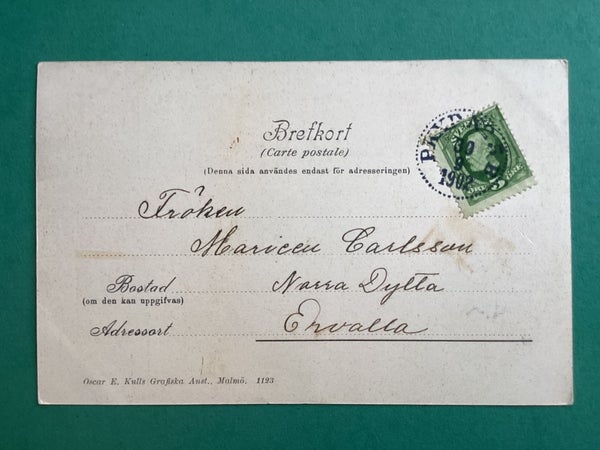 Brefkort
(Carte postale)
(Denna sida användes endast för adresseringen)
PKXP
1902
Fröken
Carlsson
Bostad
(om den kan uppgifvas)
Norra Dylta
Adressort
Ervalla
Oscar E. Kulls Grafiska Anst., Malmö. 1123